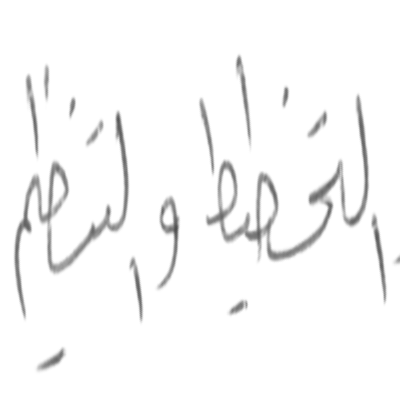 التخطيط والتنظيم